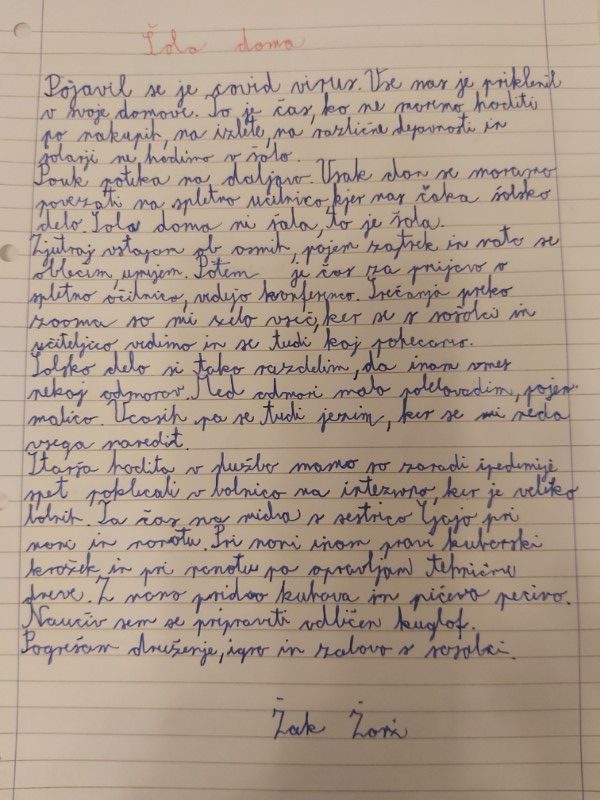 Šola doma
Pojavil se je covid virus. Vse nas je priklenil
v svoje domove. To je čas, ko ne moremo hoditi
po nakupih, na izlete, na različne dejavnosti in
šolarji ne hodimo v šolo.
Pouk poteka na daljavo. Vsak dan se moramo
povezati na spletno učilnico, kjer nas čaka šolsko
delo. Šola doma ni šala, to je šola.
Zjutraj vstajam ob osmih, pojem zajtrk in nato se
oblečim, umijem. Potem je čas za prijavo v
spletno očilnico, videjo konferenco. Srečanja preko
zooma so mi zelo všeč, ker se s sošolci in
učiteljico vidimo in se tudi kaj pohecamo.
Šolsko delo si tako razdelim, da imam vmes
nekaj odmorov. Med odmori malo potelovadim, pojem
malico. Včasih pa se tudi jezim, ker se mi neda
vsega naredit.
Starša hodita v službo mamo so zaradi epedemije
spet poklicali v bolnico na intezivno, ker je veliko
bolnih. Ta čas sva midva s sestrico Gajo pri
noni in nonotu. Pri noni imam pravi kuharski
krožek in pri nonotu pa opravljam tehnične
dneve. Z nono pridno kuhava in pičeva pecivo.
Naučiv sem se pripraviti odličen kuglof.
Pogrešam druženje, igro in zabavo s sošolci.
Žak Žorž